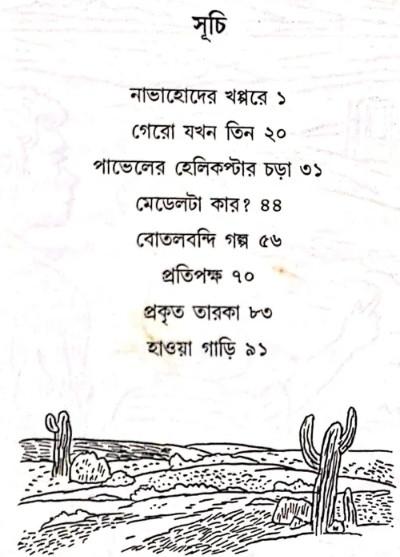 সূচি
নাভাহোদের খপ্পরে ১
গেরো যখন তিন ২০
পাভেলের হেলিকপ্টার চড়া ৩১
মেডেলটা কার? ৪৪
বোতলবন্দি গল্প ৫৬
প্রতিপক্ষ ৭০
প্রকৃত তারকা ৮৩
হাওয়া গাড়ি ৯১